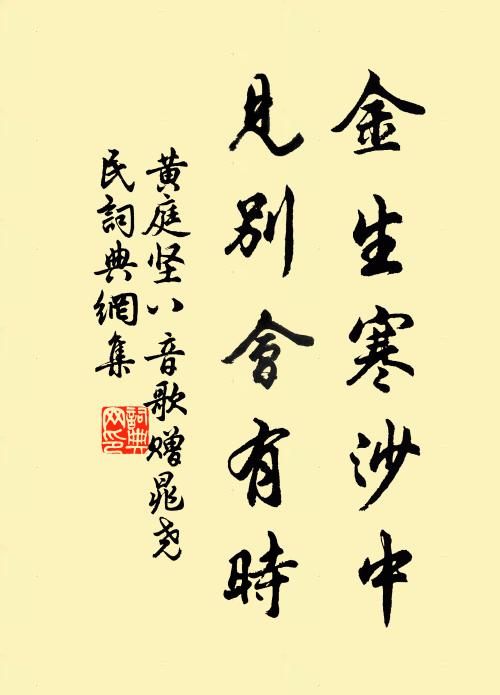 金生寒沙中
見別會有時
黄庭坚八音歌赠晁尧
民詞典網集
詞典網印